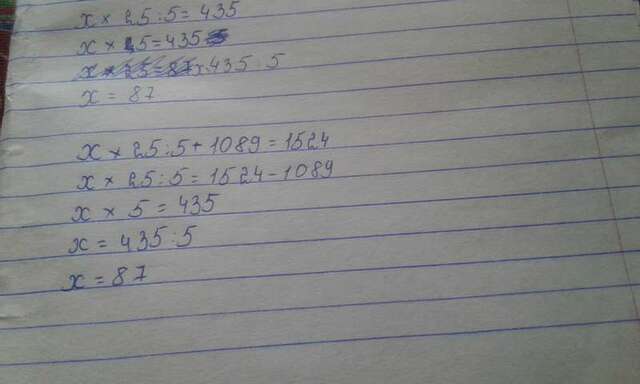 x × 25 : 5 = 435
x × 5 = 435
x × 25 = 87 x 435 : 5
x = 87
x × 25 : 5 + 1089 = 1524
x × 25 : 5 = 1524 - 1089
x × 5 = 435
x = 435 : 5
x = 87